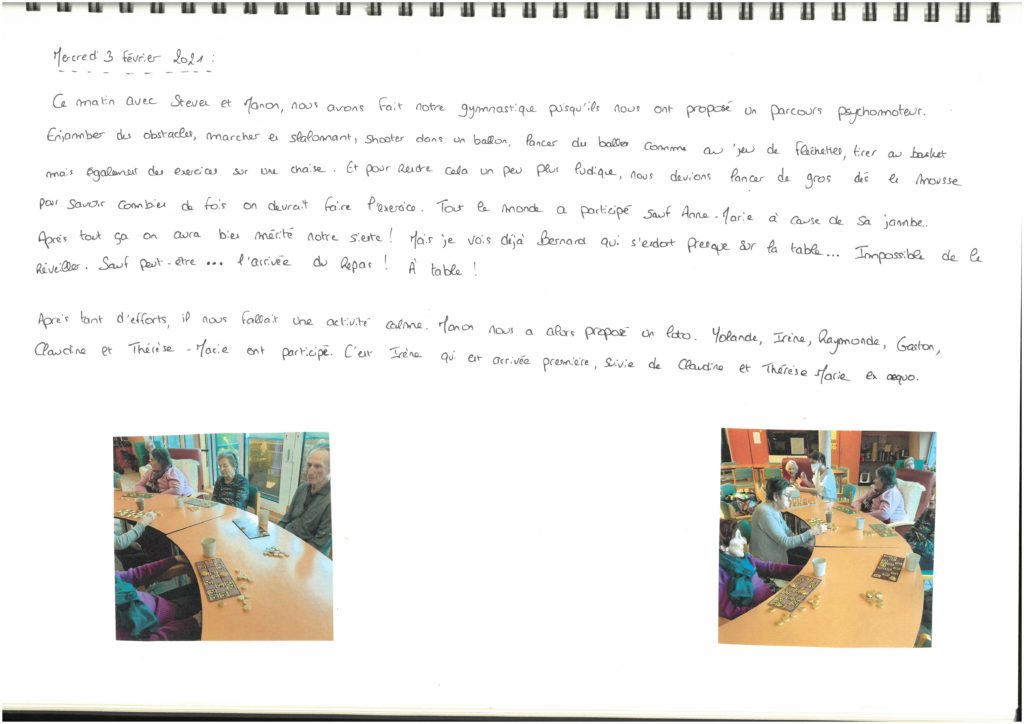 Mercredi 3 février 2021 :
Ce matin avec Steven et Manon, nous avons fait notre gymnastique puisqu'ils nous ont proposé un parcours psychomoteur.
Enjamber des obstacles, marcher en slalomant, shooter dans un ballon, lancer des balles comme au jeu de fléchettes, tirer au basket
mais également des exercices sur une chaise. Et pour rendre cela un peu plus ludique, nous devions lancer de gros dés en mousse
pour savoir combien de fois on devrait faire l'exercice. Tout le monde a participé sauf Anne-Marie à cause de sa jambe.
Après tout ça on aura bien mérité notre sieste ! Mais je vois déjà Bernard qui s'endort presque sur la table... Impossible de le
réveiller. Sauf peut-être ... l'arrivée du repas ! À table !
Après tant d'efforts, il nous fallait une activité calme. Manon nous a alors proposé un loto. Yolande, Irène, Raymonde, Gaston,
Claudine et Thérèse-Marie ont participé. C'est Irène qui est arrivée première, suivie de Claudine et Thérèse Marie ex æquo.